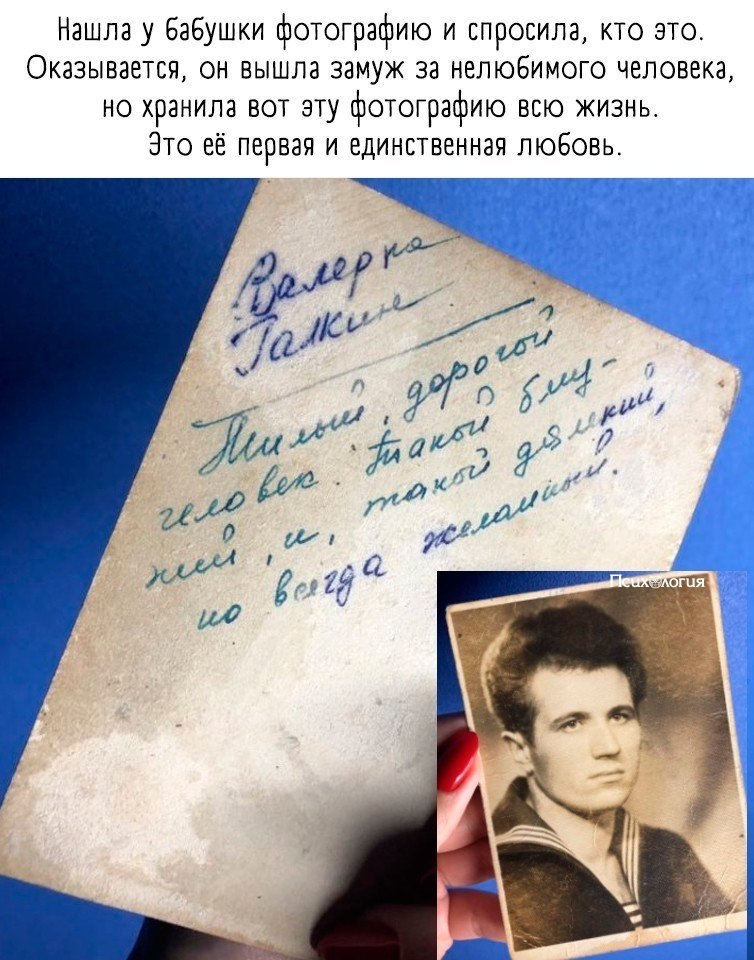 Нашла у бабушки фотографию и спросила, кто это.
Оказывается, он вышла замуж за нелюбимого человека,
но хранила вот эту фотографию всю жизнь.
Это её первая и единственная любовь.
Валерка
Галкин
Милый, дорогой
человек. Такой близ-
кий, и, такой далекий,
но всегда желанный.
Психология